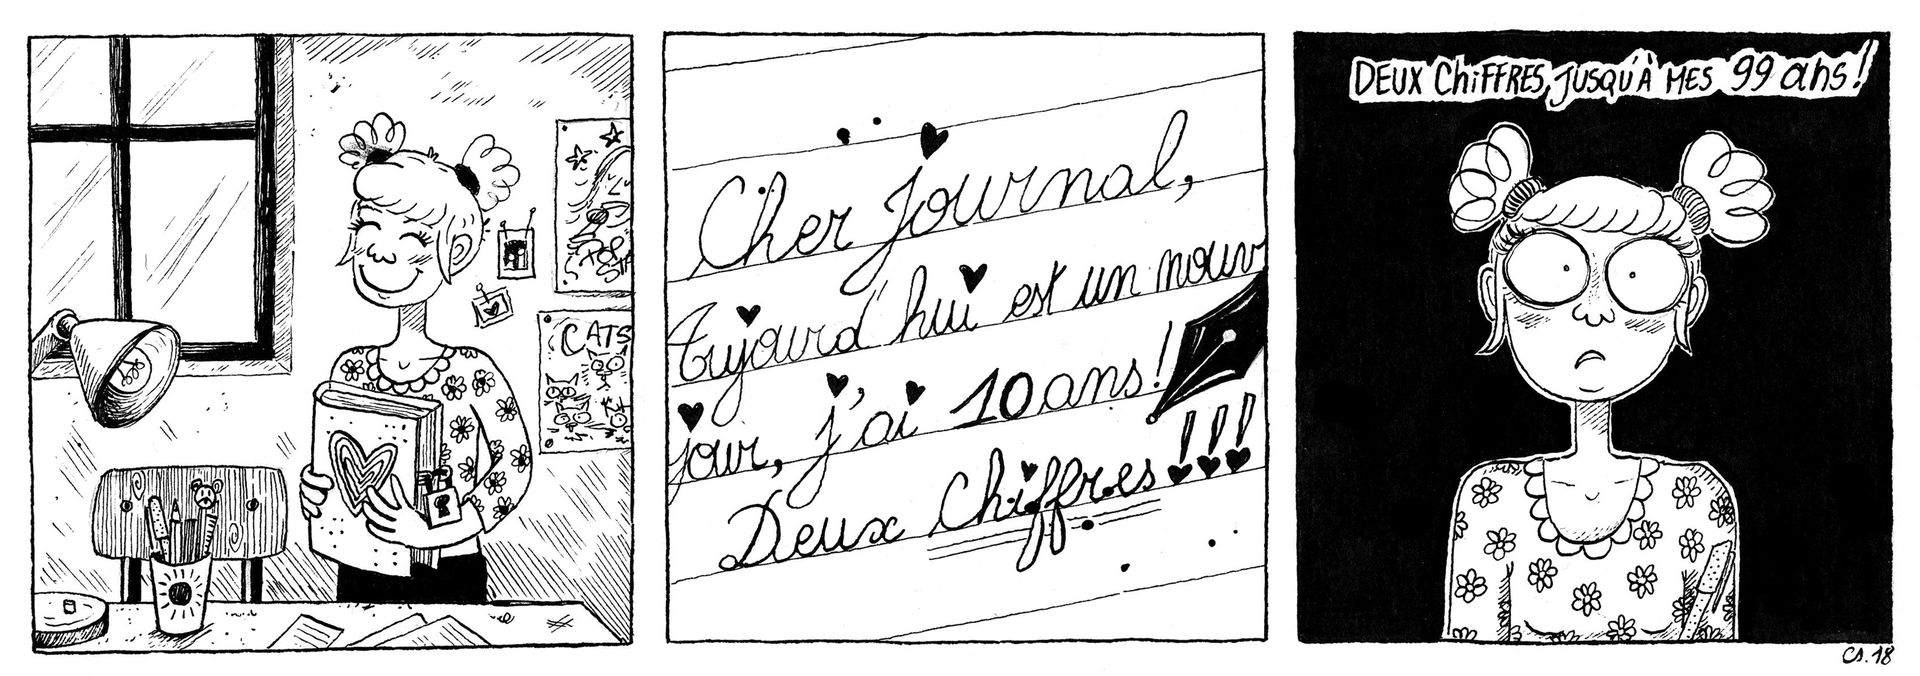 CATS
Cher journal,
Aujourd'hui est un nouv
jour, j'ai 10 ans!
Deux chiffres!!!
DEUX CHiFFRES, JUSQU'À MES 99 ans!
CS.18